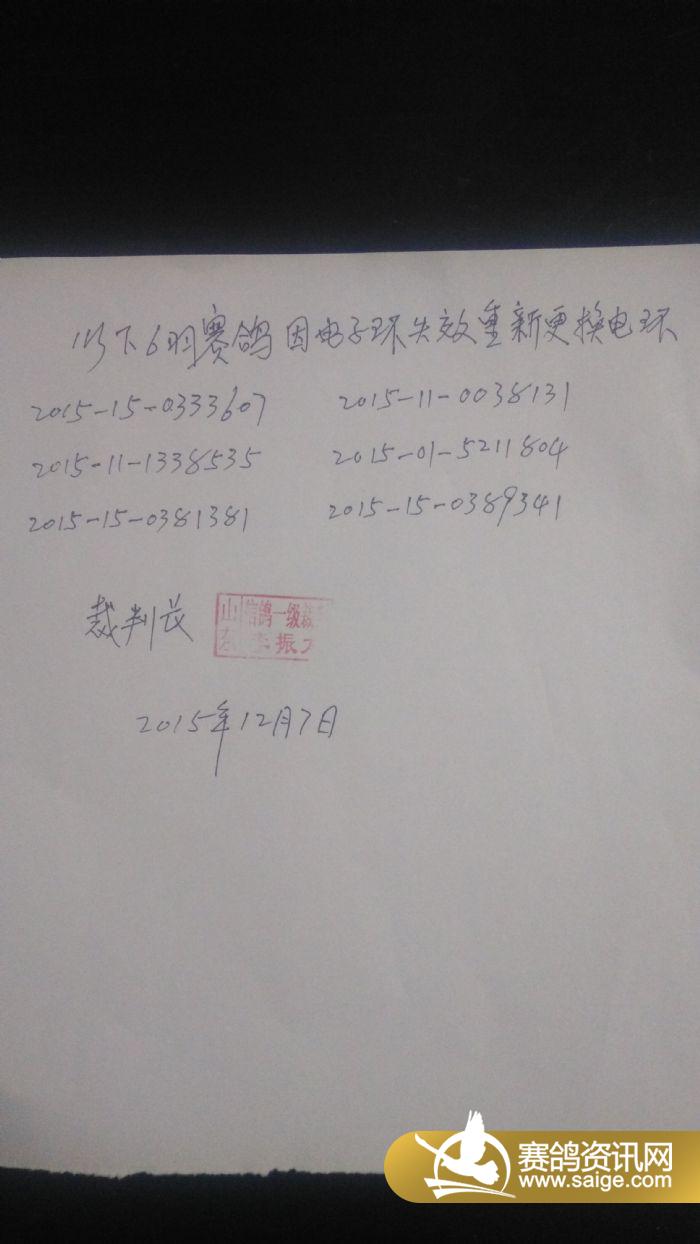 以下6羽赛鸽因电子环失效重新更换电环
2015-15-0333607 2015-11-0038131
2015-11-1338535 2015-01-5211804
2015-15-0381381 2015-15-0389341
裁判长
山东 信鸽一级裁
李振
2015年12月7日
赛鸽资讯网
www.saige.com